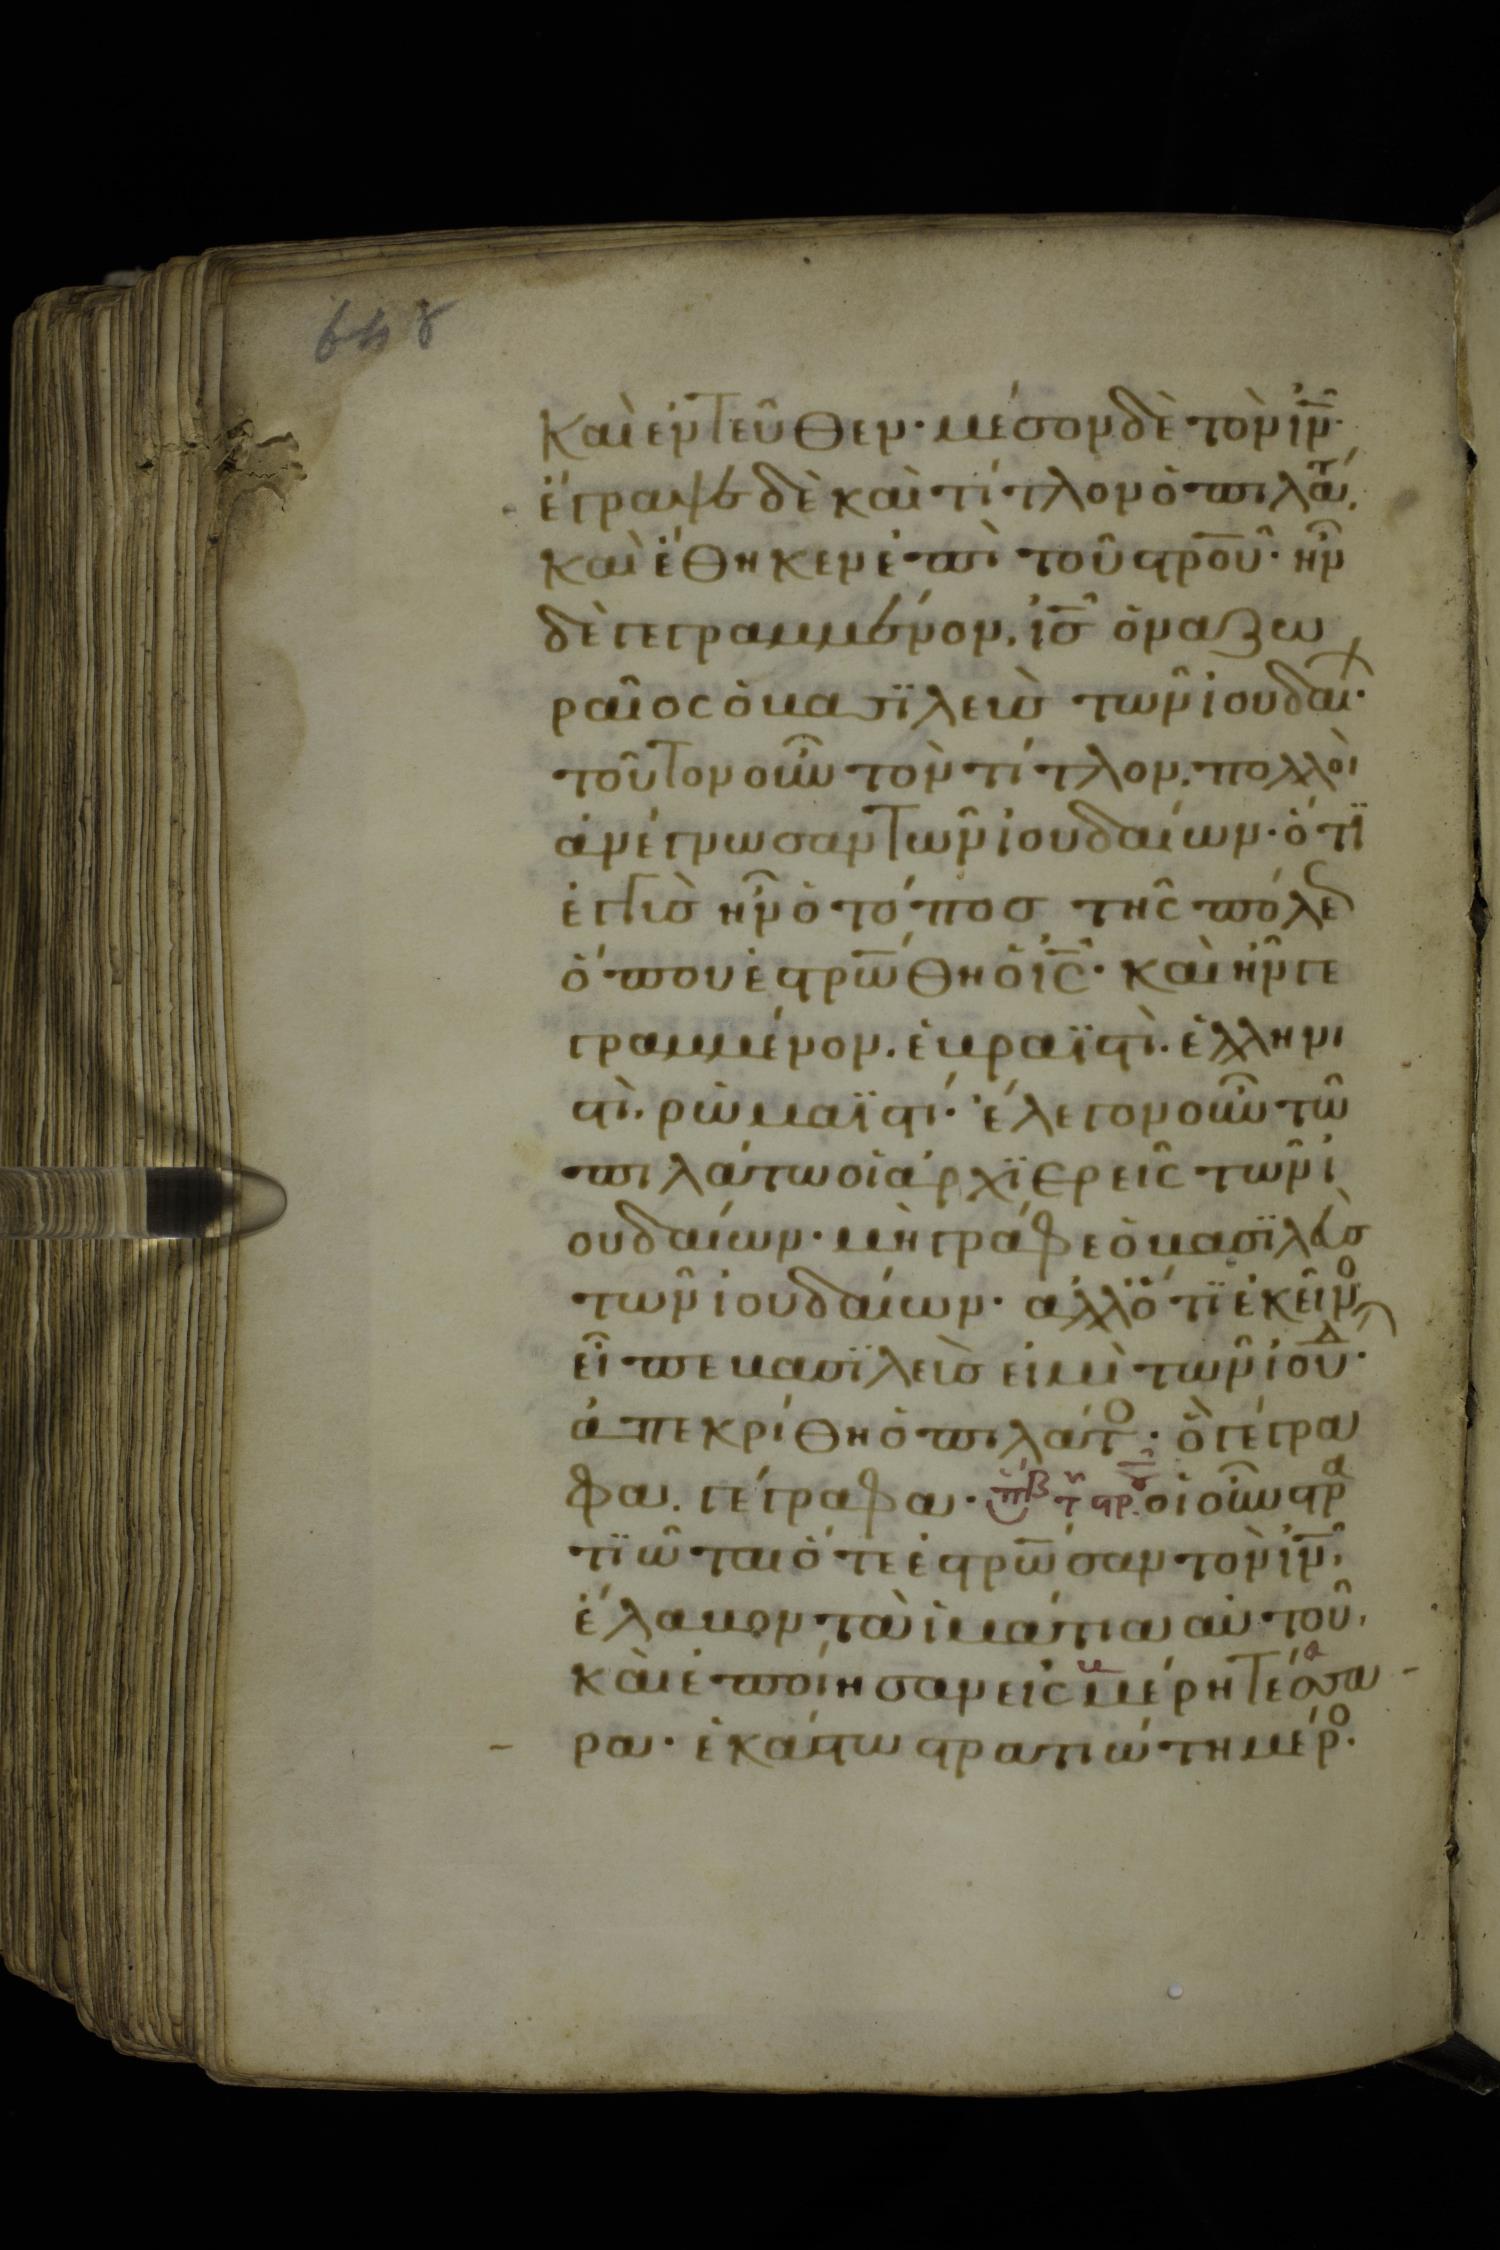 καὶ ἐντεῦθεν· μέσον δὲ τὸν ἰν̅·
ἔγραψε δὲ καὶ τίτλον ὁ πιλατ,
καὶ ἔθηκεν ἐπὶ τοῦ στρου̅· ἦν
δὲ γεγραμμένον. ἰσ̅ ὁ ναζω
ραῖος ὁ βασϊλεὺς τῶν ἰουδαι·
τοῦτον οὖν τὸν τίτλον. πολλοὶ
ἀνέγνωσαν τῶν ἰουδαίων· ὅτϊ
ἐγγὺσ ἦν ὁ τόποσ τῆς πόλε
ὅπου ἐστρω̅θη ὁ ἰς̅· καὶ ἦν γε
γραμμένον. ἑβραϊστὶ. ἑλληνι
στὶ. ῥωμαϊστί· ἔλεγον οὖν τῶ
πιλάτω οἱ ἀρχϊερεῖς τῶν ἰ
ουδαίων· μὴ γράφε ὁ βασϊλεὺσ
τῶν ἰουδαίων· ἀλλ' ὅτϊ ἐκεῖνο
εἶπε βασϊλεὺσ εἰμὶ τῶν ἰουδ̅·
ἀπεκρίθη ὁ πιλάτο· ὃ γέγρα
φα. γέγραφα· οἱ οὖν στρα
τϊῶται ὅτε ἐστρω̅σαν τὸν ἰν̅,
ἔλαβον τὰ ἱμάτια αὐτοῦ,
καὶ ἐποίησαν εἰς μέρη τέσσα
ρα· ἑκάστω στρατιώτη μέρο·